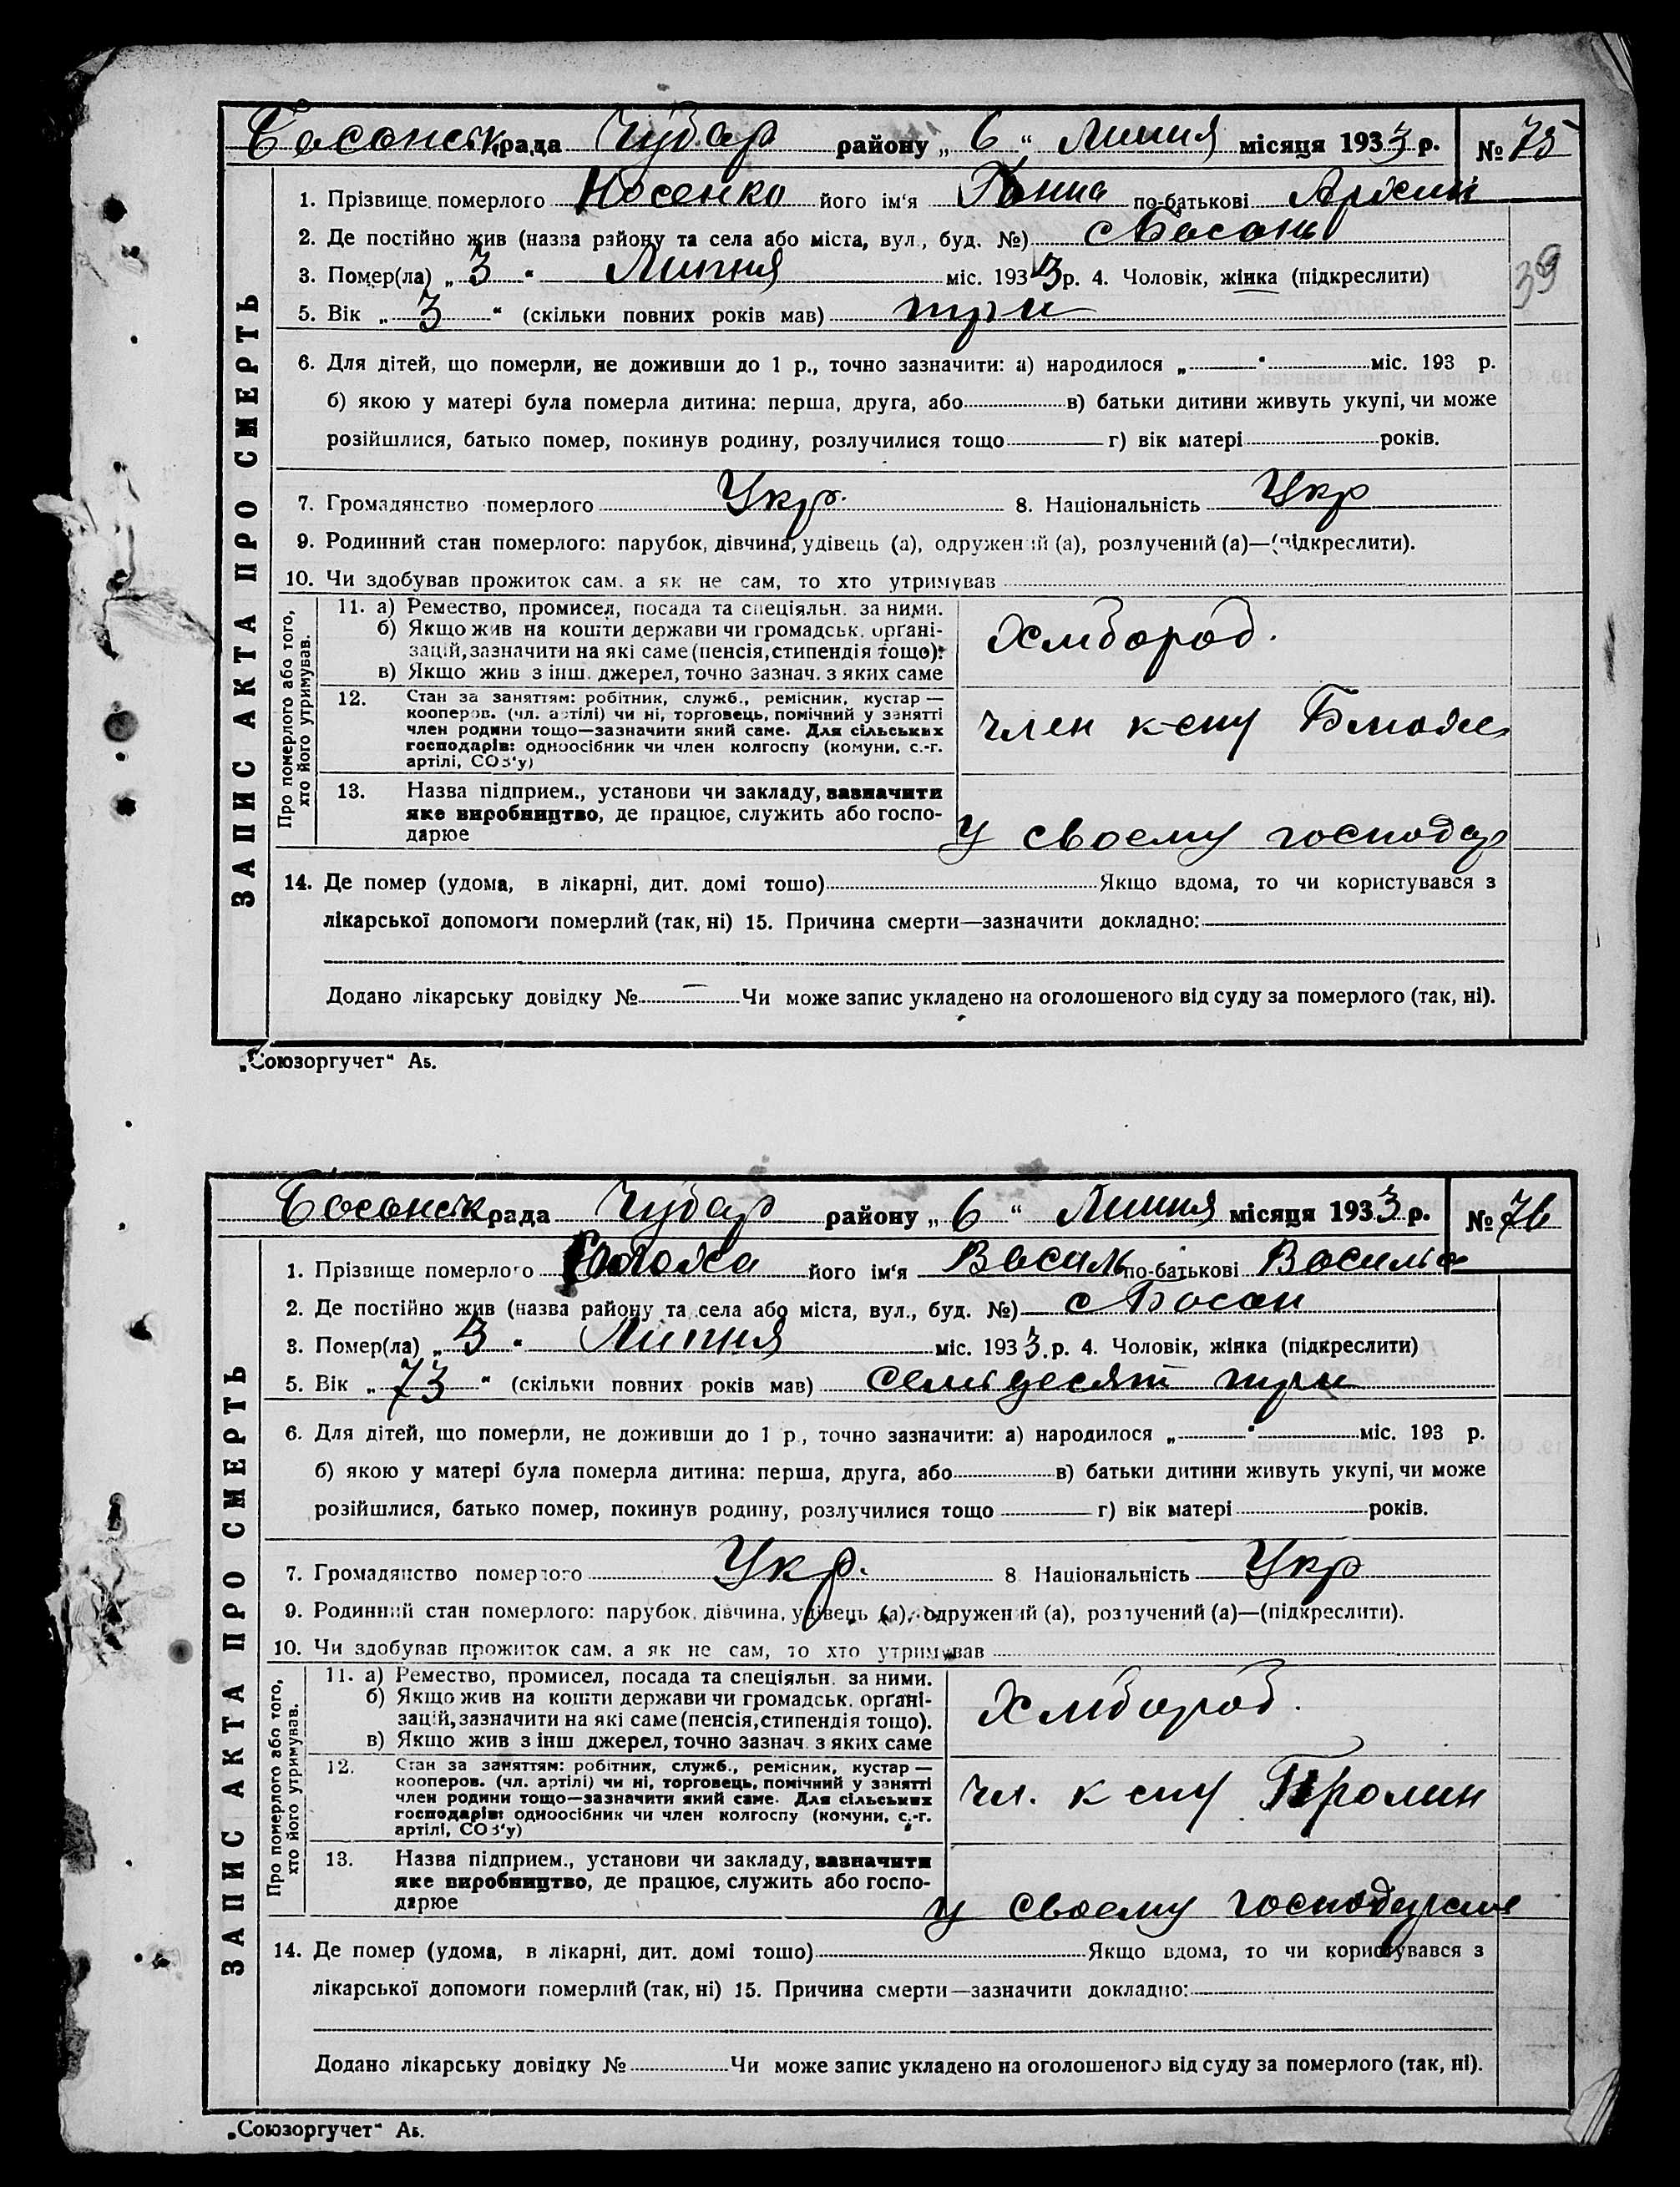 Босанськ рада Чубар району „ 6 “ Липня місяця 1933 р. № 75
1. Прізвище померлого Носенко його ім‘я Ганна по-батькові
2. Де постійно жив (назва району та села або міста, вул., буд. №) с Босань
3. Помер(ла) „ 3 “ Липня міс. 1933 р. 4. Чоловік, жінка (підкреслити)
39
5. Вік „ 3 “ (скільки повних років мав) три
6. Для дітей, що померли, не доживши до 1 р., точно зазначити: а) народилося „ “ міс. 193 р.
б) якою у матері була померла дитина: перша, друга, або в) батьки дитини живуть укупі, чи може
розійшлися, батько помер, покинув родину, розлучилися тощо г) вік матері років.
7. Громадянство померлого Укр. 8. Національність Укр
9. Родинний стан померлого: парубок, дівчина, удівець (а), одружений (а), розлучений (а)—(підкреслити).
10. Чи здобував прожиток сам, а як не сам, то хто утримував
ЗАПИС АКТА ПРО СМЕРТЬ
Про померлого або того, хто його утримував.
11. а) Ремество, промисел, посада та спеціяльн. за ними.
б) Якщо жив на кошти держави чи громадськ. орґані-
зацій, зазначити на які саме (пенсія, стипендія тощо).
в) Якщо жив з інш. джерел, точно зазнач. з яких саме
Хлібороб.
12. Стан за заняттям: робітник, служб., ремісник, кустар —
кооперов. (чл. артілі) чи ні, торговець, помічний у занятті
член родини тощо—зазначити який саме. Для сільських
господарів: одноосібник чи член колгоспу (комуни, с.-г.
артілі, СОЗ‘у)
член к-спу
13. Назва підприєм., установи чи закладу, зазначити
яке виробництво, де працює, служить або госпо-
дарює
у своему господар
14. Де помер (удома, в лікарні, дит. домі тощо) Якщо вдома, то чи користувався з
лікарської допомоги померлий (так, ні) 15. Причина смерти—зазначити докладно:
Додано лікарську довідку № — Чи може запис укладено на оголошеного від суду за померлого (так, ні).
„Союзоргучет“ А5.
Босанськ рада Чубар району „ 6 “ Липня місяця 1933 р. № 76
1. Прізвище померлого його ім‘я Василь по-батькові Василье
2. Де постійно жив (назва району та села або міста, вул., буд. №) с Босан
3. Помер(ла) „ 3 “ Липня міс. 1933 р. 4. Чоловік, жінка (підкреслити)
5. Вік „ 73 “ (скільки повних років мав) семьдесят три
6. Для дітей, що померли, не доживши до 1 р., точно зазначити: а) народилося „ “ міс. 193 р.
б) якою у матері була померла дитина: перша, друга, або в) батьки дитини живуть укупі, чи може
розійшлися, батько помер, покинув родину, розлучилися тощо г) вік матері років.
7. Громадянство померлого Укр. 8. Національність Укр
9. Родинний стан померлого: парубок, дівчина, удівець (а), одружений (а), розлучений (а)—(підкреслити).
10. Чи здобував прожиток сам, а як не сам, то хто утримував
ЗАПИС АКТА ПРО СМЕРТЬ
Про померлого або того, хто його утримував.
11. а) Ремество, промисел, посада та спеціяльн. за ними.
б) Якщо жив на кошти держави чи громадськ. орґані-
зацій, зазначити на які саме (пенсія, стипендія тощо).
в) Якщо жив з інш джерел, точно зазнач. з яких саме
Хлібороб.
12. Стан за заняттям: робітник, служб., ремісник, кустар —
кооперов. (чл. артілі) чи ні, торговець, помічний у занятті
член родини тощо—зазначити який саме. Для сільських
господарів: одноосібник чи член колгоспу (комуни, с.-г.
артілі, СОЗ‘у)
чл. к спу Пролин
13. Назва підприєм., установи чи закладу, зазначити
яке виробництво, де працює, служить або госпо-
дарює
у своему
14. Де помер (удома, в лікарні, дит. домі тощо) Якщо вдома, то чи користувався з
лікарської допомоги померлий (так, ні) 15. Причина смерти—зазначити докладно:
Додано лікарську довідку № Чи може запис укладено на оголошеного від суду за померлого (так, ні).
„Союзоргучет“ А5.